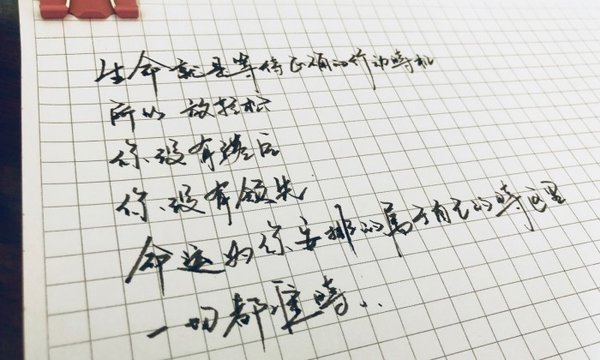 生命就是等待正确的行动時机
所以 放轻松
你没有落后
你没有领先
命运为你安排的属于自己的時区里
一切都准時..